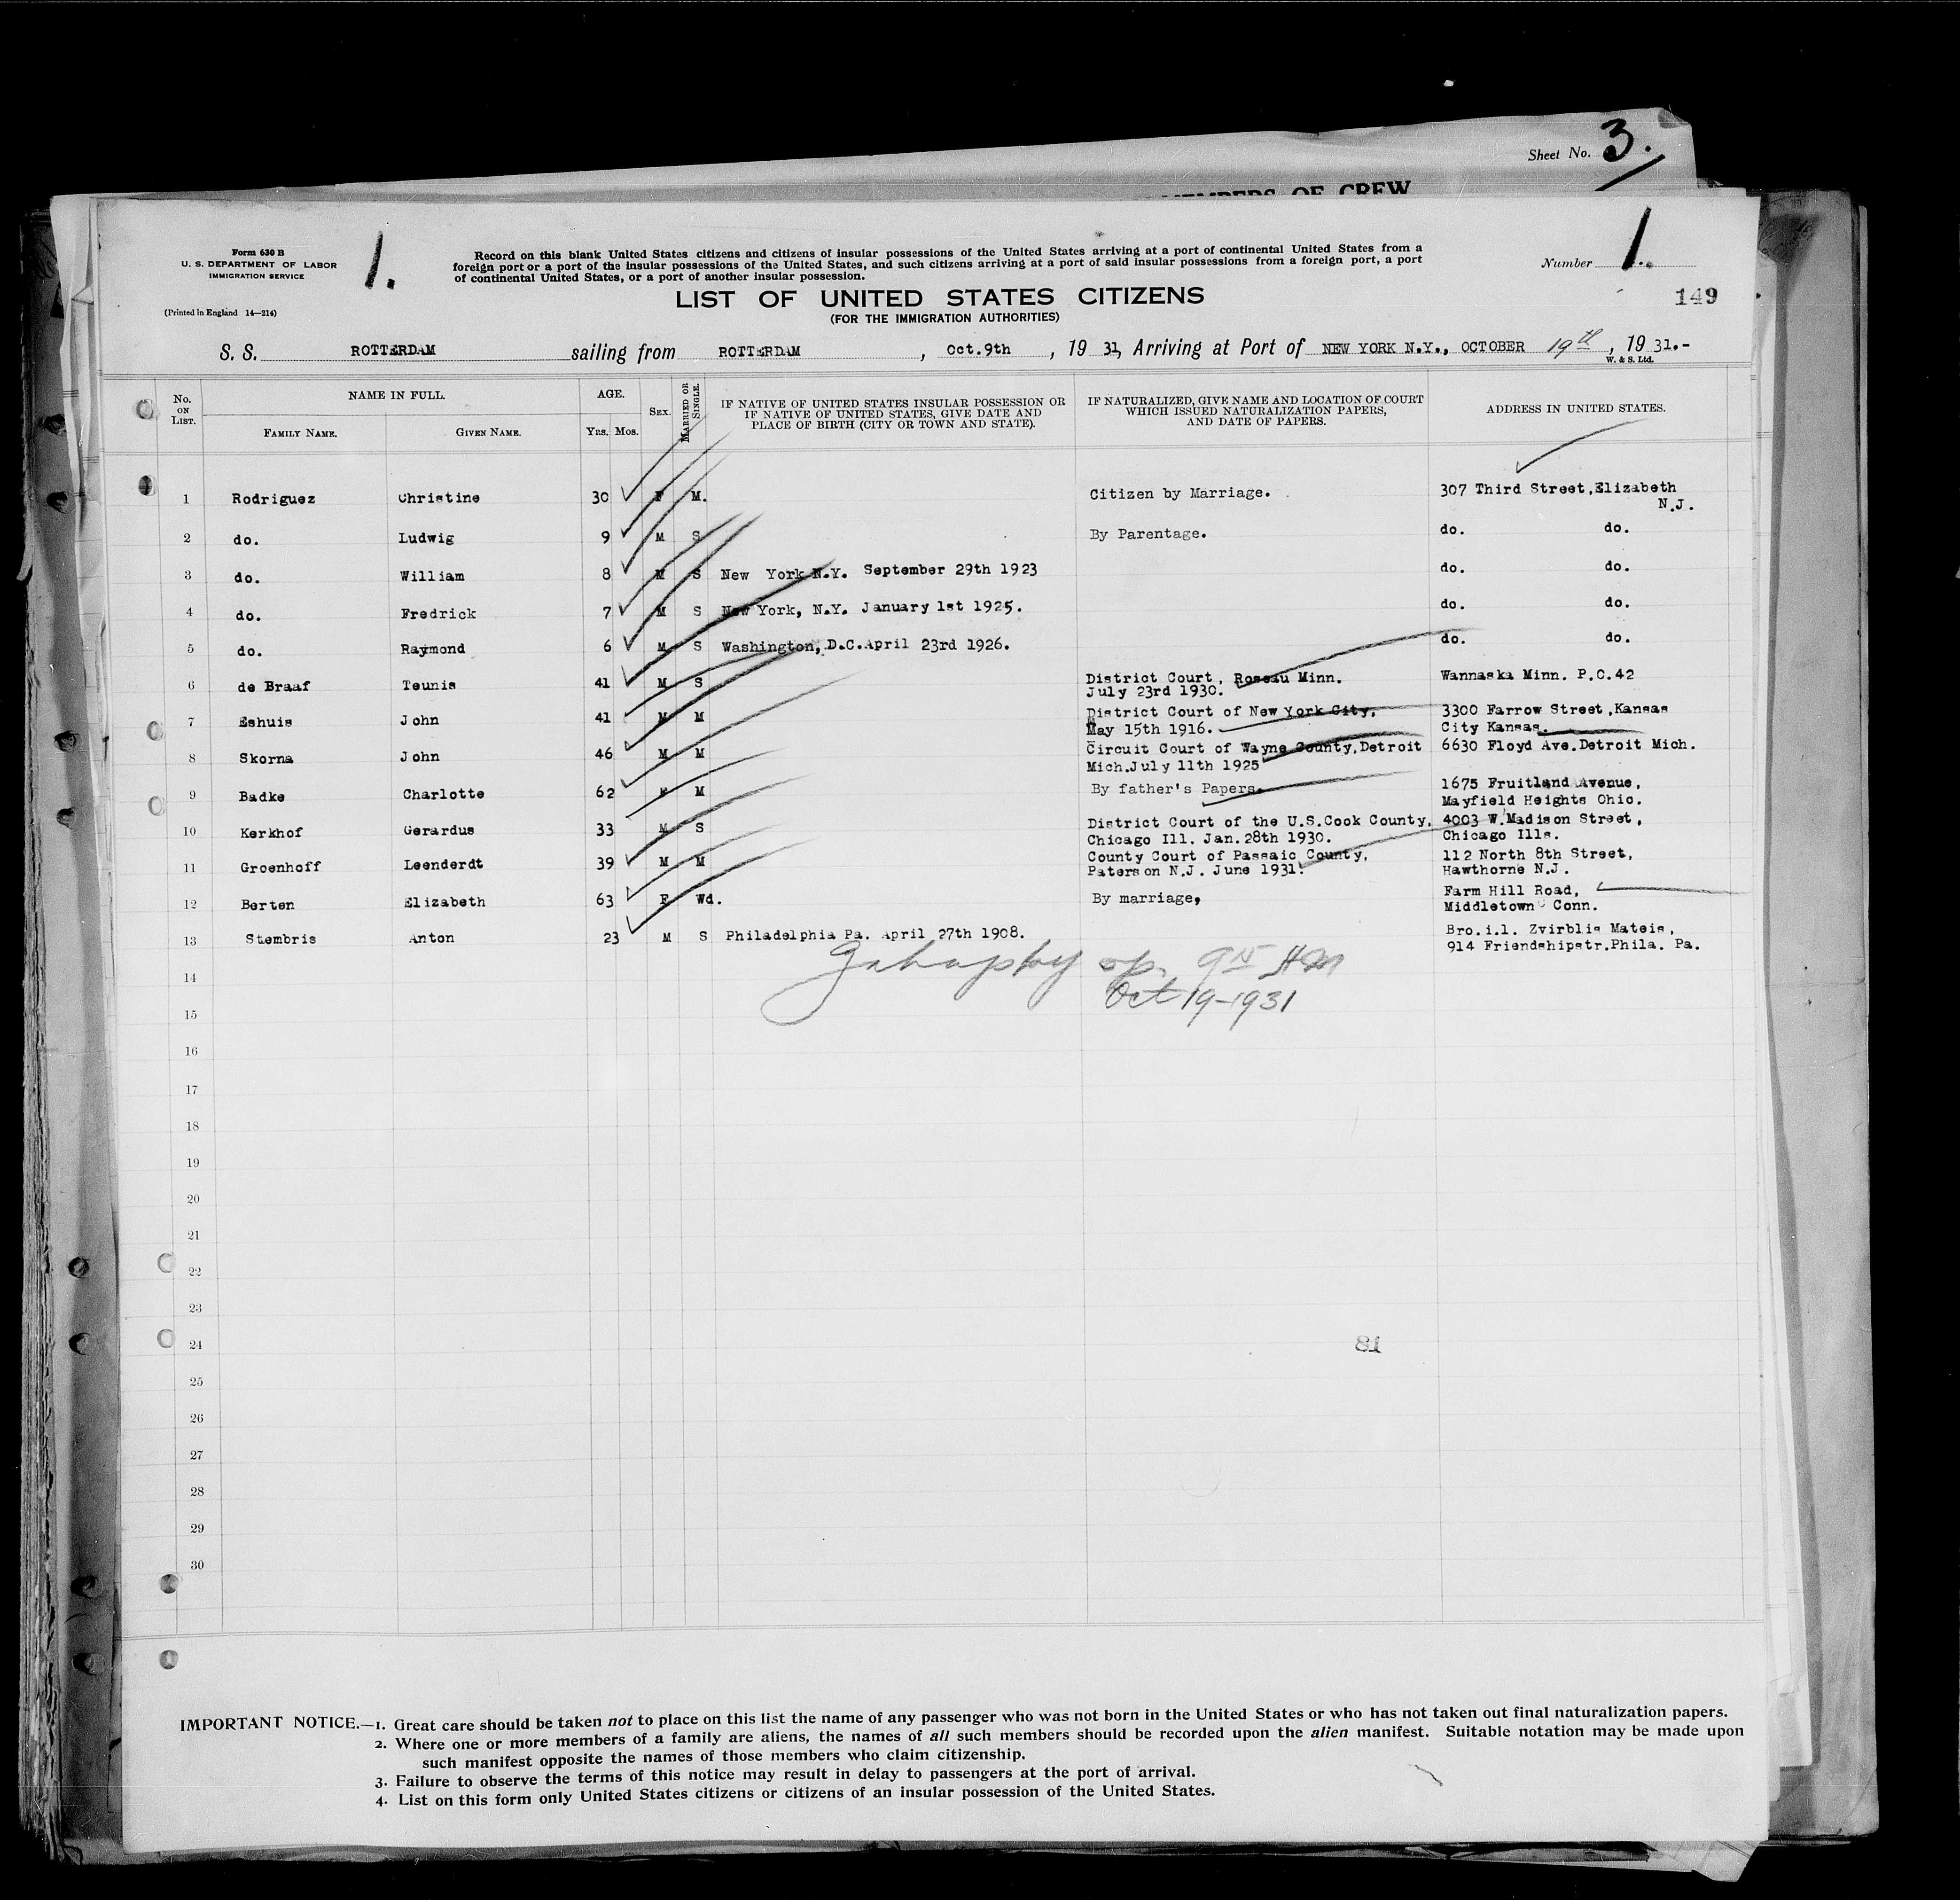 Sheet No. 3.
MEMBERS OF CREW
Form 630 B
U. S. DEPARTMENT OF LABOR
IMMIGRATION SERVICE
(Printed in England 14—214)
1.
Record on this blank United States citizens and citizens of insular possessions of the United States arriving at a port of continental United States from a
foreign port or a port of the insular possessions of the United States, and such citizens arriving at a port of said insular possessions from a foreign port, a port
of continental United States, or a port of another insular possession.
Number 1.
149
LIST OF UNITED STATES CITIZENS
(FOR THE IMMIGRATION AUTHORITIES)
S. S. ROTTERDAM sailing from ROTTERDAM , Oct.9th , 19 31, Arriving at Port of NEW YORK N.Y., OCTOBER 19th , 19 31.-
W. & S. Ltd.
No. ON LIST. NAME IN FULL. FAMILY NAME. GIVEN NAME. AGE. Yrs. Mos. SEX. MARRIED OR SINGLE. IF NATIVE OF UNITED STATES INSULAR POSSESSION OR IF NATIVE OF UNITED STATES, GIVE DATE AND PLACE OF BIRTH (CITY OR TOWN AND STATE). IF NATURALIZED, GIVE NAME AND LOCATION OF COURT WHICH ISSUED NATURALIZATION PAPERS, AND DATE OF PAPERS. ADDRESS IN UNITED STATES.
1 Rodriguez Christine 30 F M. Citizen by Marriage. 307 Third Street,Elizabeth
N.J.
2 do. Ludwig 9 M S By Parentage. do. do.
3 do. William 8 M S New York N.Y. September 29th 1923 do. do.
4 do. Fredrick 7 M S New York, N.Y. January 1st 1925. do. do.
5 do. Raymond 6 M S Washington, D.C.April 23rd 1926. do. do.
6 de Braaf Teunis 41 M S District Court, Roseau Minn. Wannaska Minn. P.O.42
July 23rd 1930.
7 Eshuis John 41 M M District Court of New York City, 3300 Farrow Street,Kansas
May 15th 1916. City Kansas.
8 Skorna John 46 M M Circuit Court of Wayne County,Detroit 6630 Floyd Ave.Detroit Mich.
Mich.July 11th 1925
9 Badke Charlotte 62 F M By father's Papers. 1675 Fruitland Avenue,
Mayfield Heights Ohio.
10 Kerkhof Gerardus 33 M S District Court of the U.S.Cook County, 4003 W.Madison Street,
Chicago Ill. Jan.28th 1930. Chicago Ills.
11 Groenhoff Leenderdt 39 M M County Court of Passaic County, 112 North 8th Street,
Paterson N.J. June 1931. Hawthorne N.J.
12 Berten Elizabeth 63 F Wd. By marriage, Farm Hill Road,
Middletown Conn.
13 Stembris Anton 23 M S Philadelphia Pa. April 27th 1908. Bro.i.l. Zvirblis Mateis,
914 Friendshipstr.Phila. Pa.
14
Oct 19-1931
15
16
17
18
19
20
21
22
23
24 81
25
26
27
28
29
30
IMPORTANT NOTICE.—1. Great care should be taken not to place on this list the name of any passenger who was not born in the United States or who has not taken out final naturalization papers.
2. Where one or more members of a family are aliens, the names of all such members should be recorded upon the alien manifest. Suitable notation may be made upon
such manifest opposite the names of those members who claim citizenship.
3. Failure to observe the terms of this notice may result in delay to passengers at the port of arrival.
4. List on this form only United States citizens or citizens of an insular possession of the United States.